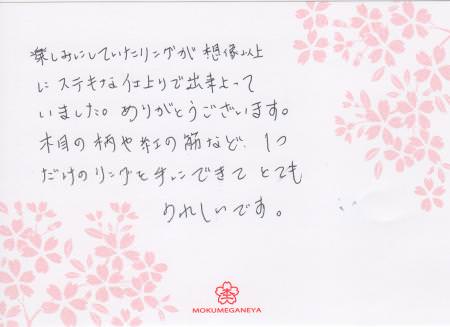 楽しみにしていたリングが想像以上
にステキな仕上りで出来上って
いました。ありがとうございます。
木目の柄や紅の筋など、1つ
だけのリングを手にできてとても
うれしいです。
MOKUMEGANEYA